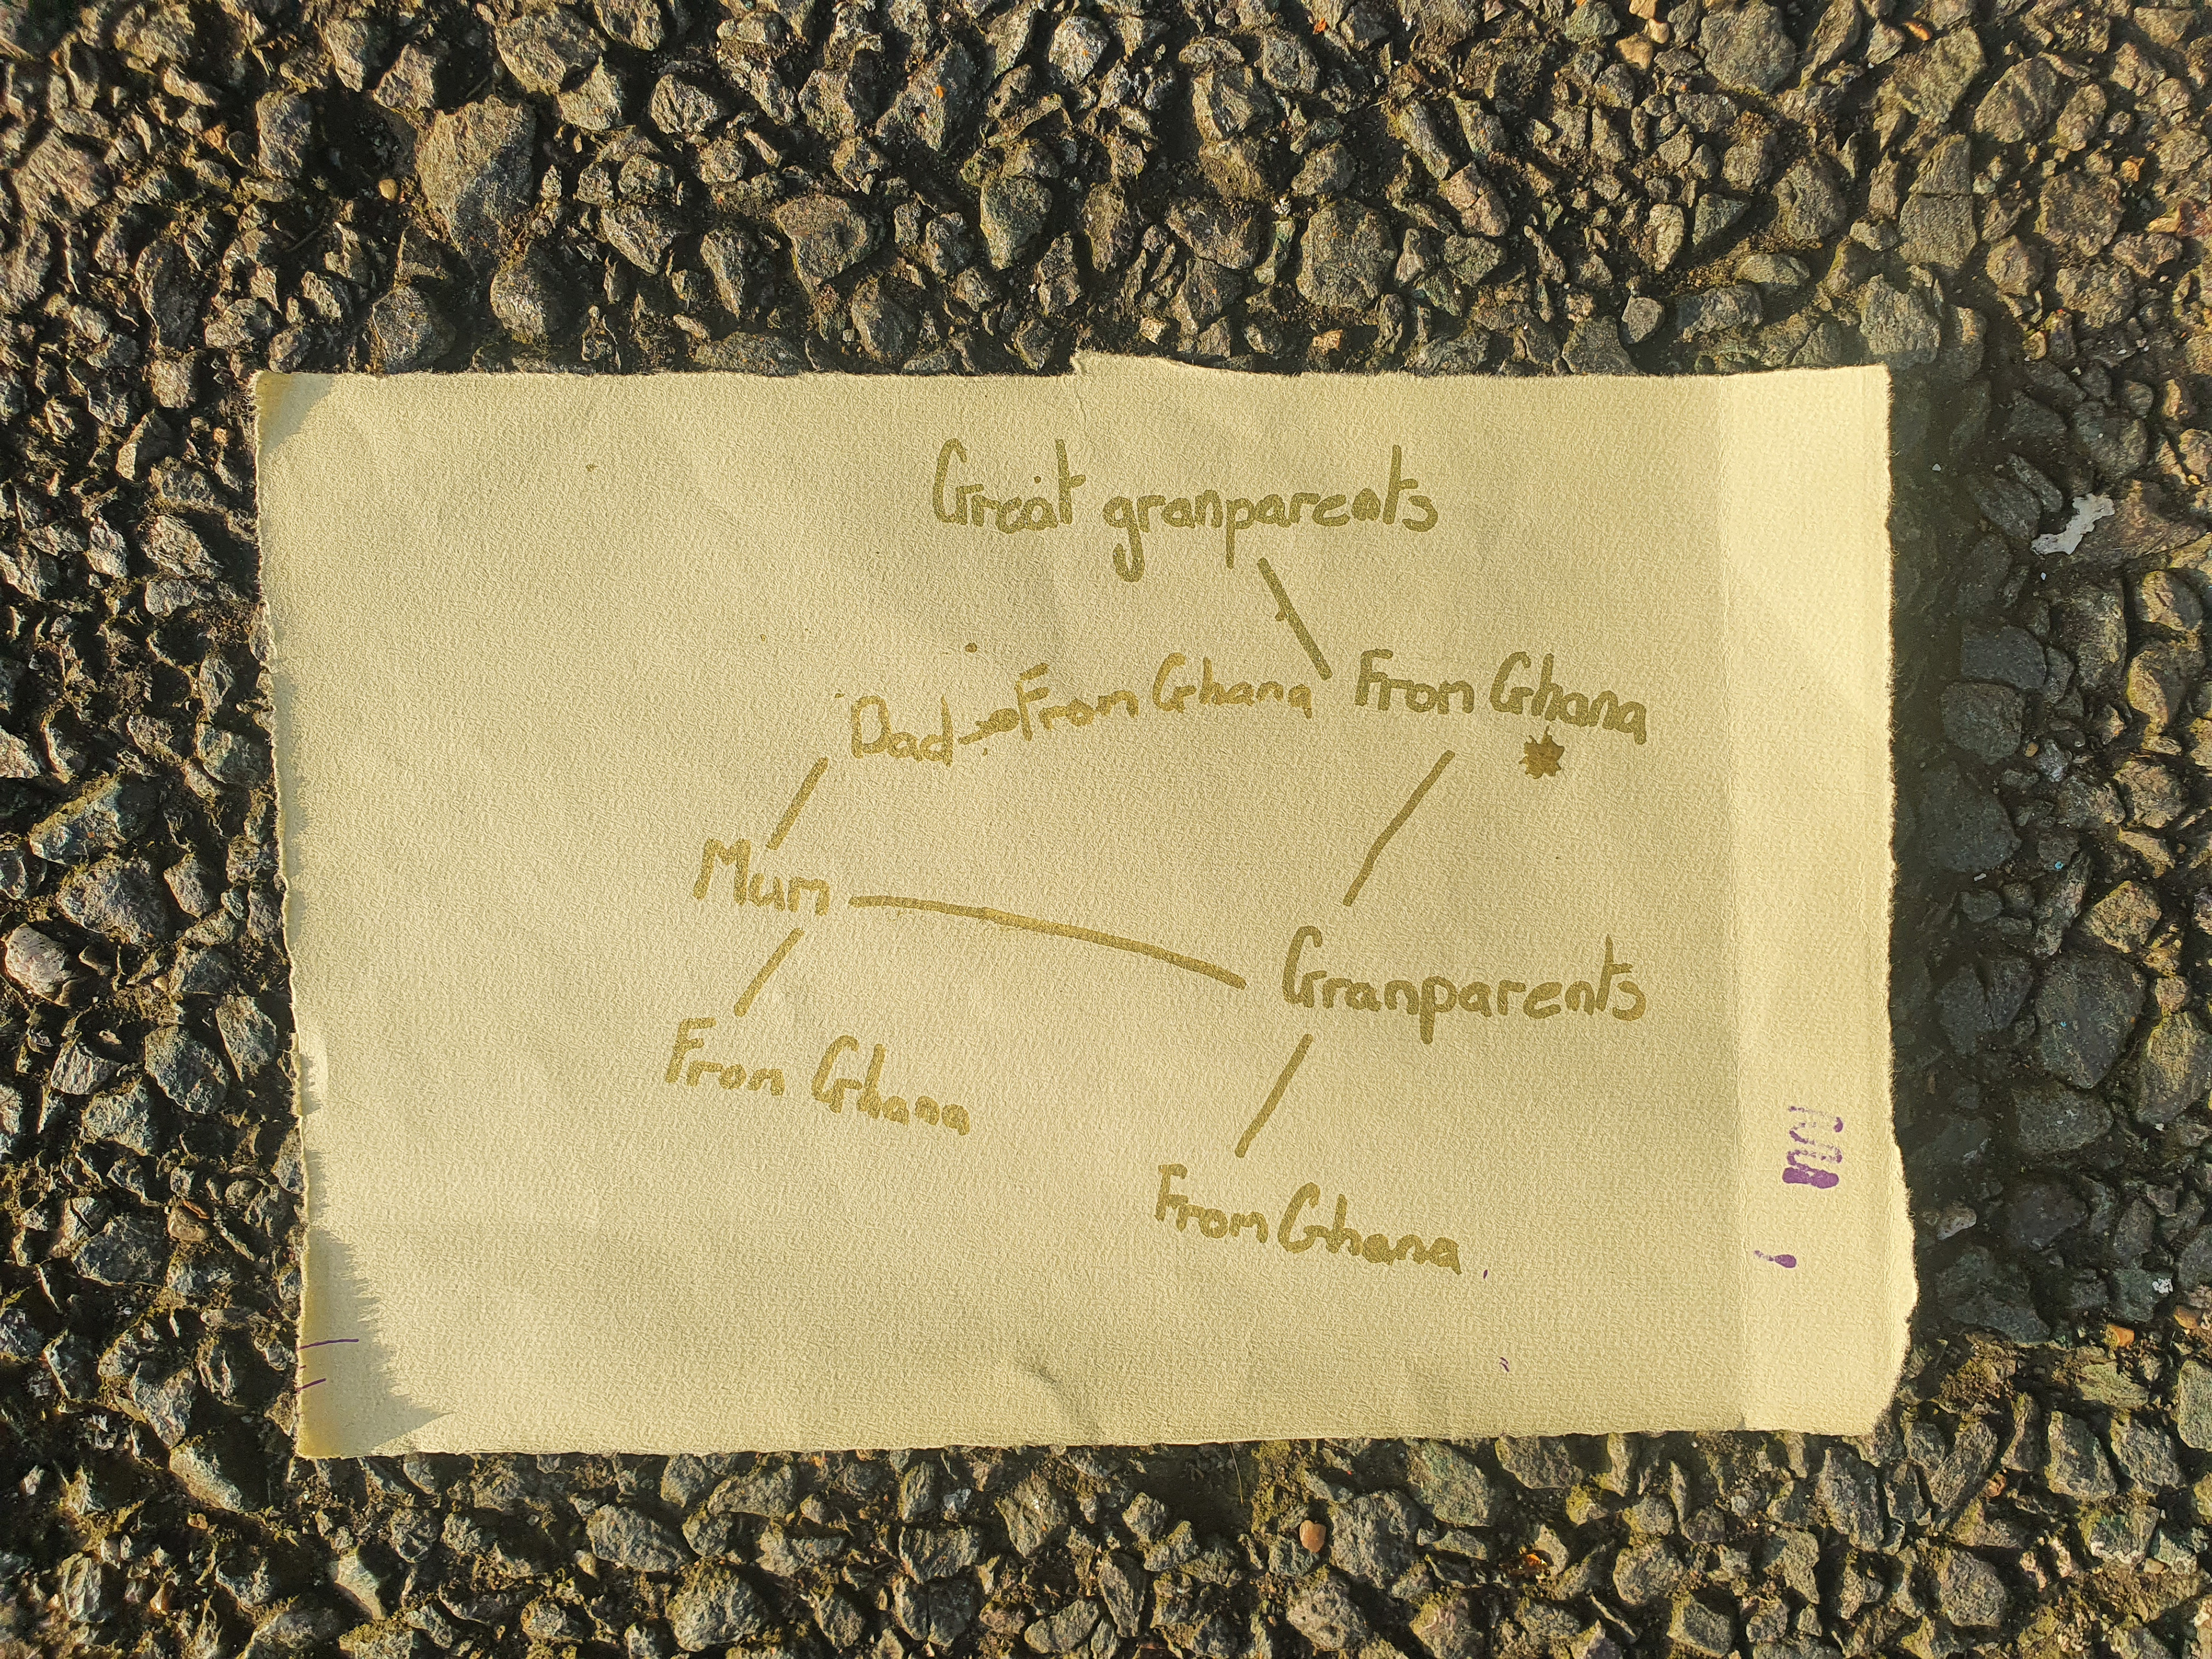 Great granparents
Dad - From Ghana
From Ghana
Mum
Granparents
From Ghana
From Ghana